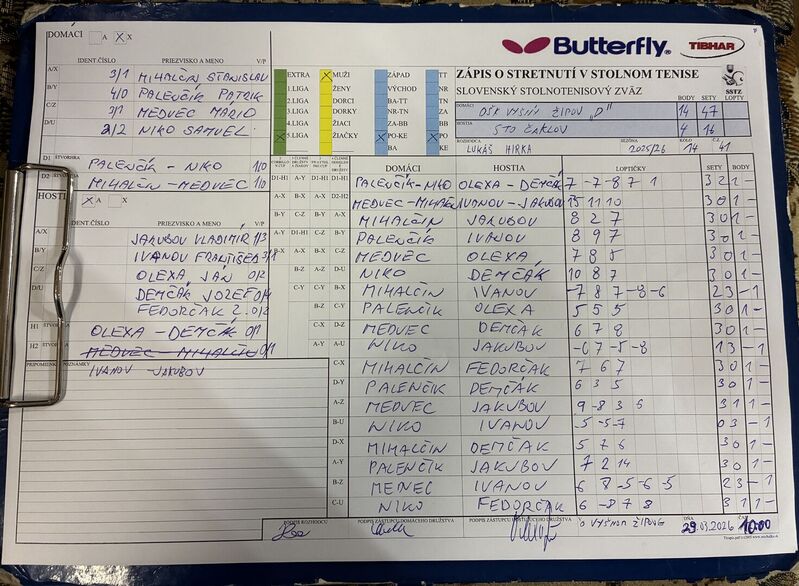 DOMÁCI A X
Butterfly
TIBHAR
IDENT.ČÍSLO PRIEZVISKO A MENO V/P
A/X 3/1 MIHALČIN STANISLAV
B/Y 4/0 PALENČÍK PATRIK
C/Z 3/1 MEDVEC MÁRIO
D/U 2/2 NIKO SAMUEL
EXTRA MUŽI ZÁPAD TT
1.LIGA ŽENY VÝCHOD NR
2.LIGA DORCI BA-TT TN
3.LIGA DORKY NR-TN ZA
4.LIGA ŽIACI ZA-BB BB
5.LIGA ŽIAČKY PO-KE PO
BA KE
ZÁPIS O STRETNUTÍ V STOLNOM TENISE
SLOVENSKÝ STOLNOTENISOVÝ ZVÄZ
SSTZ
BODY SETY LOPTY
DOMÁCI OŠK VYŠNÝ ŽIPOV "D" 14 47
HOSTIA STO ČAKLOV 4 16
ROZHODCA LUKÁŠ HIRKA SEZÓNA 2025/26 KOLO 14 Č.Z. 41
D1 ŠTVORHRA PALENČÍK - NIKO 1/0
D2 MIHALČIN - MEDVEC 1/0
HOSTIA A X
IDENT.ČÍSLO PRIEZVISKO A MENO V/P
A/X JAKUBOV VLADIMÍR 1/3
B/Y IVANOV FRANTIŠEK 3/1
C/Z OLEXA JÁN 0/2
D/U DEMČÁK JOZEF 0/4
FEDORČÁK Z. 0/2
H1 OLEXA - DEMČÁK 0/1
H2 MEDVEC - MIHALČIN 0/1
PRIPOMIENKY POZNÁMKY
IVANOV - JAKUBOV
DOMÁCI HOSTIA LOPTIČKY SETY BODY
D1-H1 A-Y D1-H1 D1-H1 PALENČÍK-NIKO OLEXA - DEMČÁK 7 -7 -8 7 1 3 2 1 -
MEDVEC-MIHALČIN IVANOV - JAKUBOV 15 11 10 3 0 1 -
MIHALČIN JAKUBOV 8 2 7 3 0 1 -
PALENČÍK IVANOV 8 9 7 3 0 1 -
MEDVEC OLEXA 7 8 5 3 0 1 -
NIKO DEMČÁK 10 8 7 3 0 1 -
MIHALČIN IVANOV -7 8 7 -8 -6 2 3 - 1
PALENČÍK OLEXA 5 5 5 3 0 1 -
C-X D-Z MEDVEC DEMČÁK 6 7 8 3 0 1 -
A-Y A-U NIKO JAKUBOV -6 7 -5 -8 1 3 - 1
C-X MIHALČIN FEDORČAK 7 6 7 3 0 1 -
D-Y PALENČÍK DEMČÁK 6 3 5 3 0 1 -
A-Z MEDVEC JAKUBOV 9 -8 3 6 3 1 1 -
B-U NIKO IVANOV -5 -5 -7 0 3 - 1
D-X MIHALČIN DEMČAK 5 7 6 3 0 1 -
A-Y PALENČÍK JAKUBOV 7 2 14 3 0 1 -
B-Z MEDVEC IVANOV 6 8 -5 -6 -5 2 3 - 1
C-U NIKO FEDORČAK 6 -8 7 8 3 1 1 -
PODPIS ROZHODCU PODPIS ZÁSTUPCU DOMÁCEHO DRUŽSTVA PODPIS ZÁSTUPCU HOSŤUJÚCEHO DRUŽSTVA VYŠNOM ŽIPOVE DŇA 29.03.2026 10:00